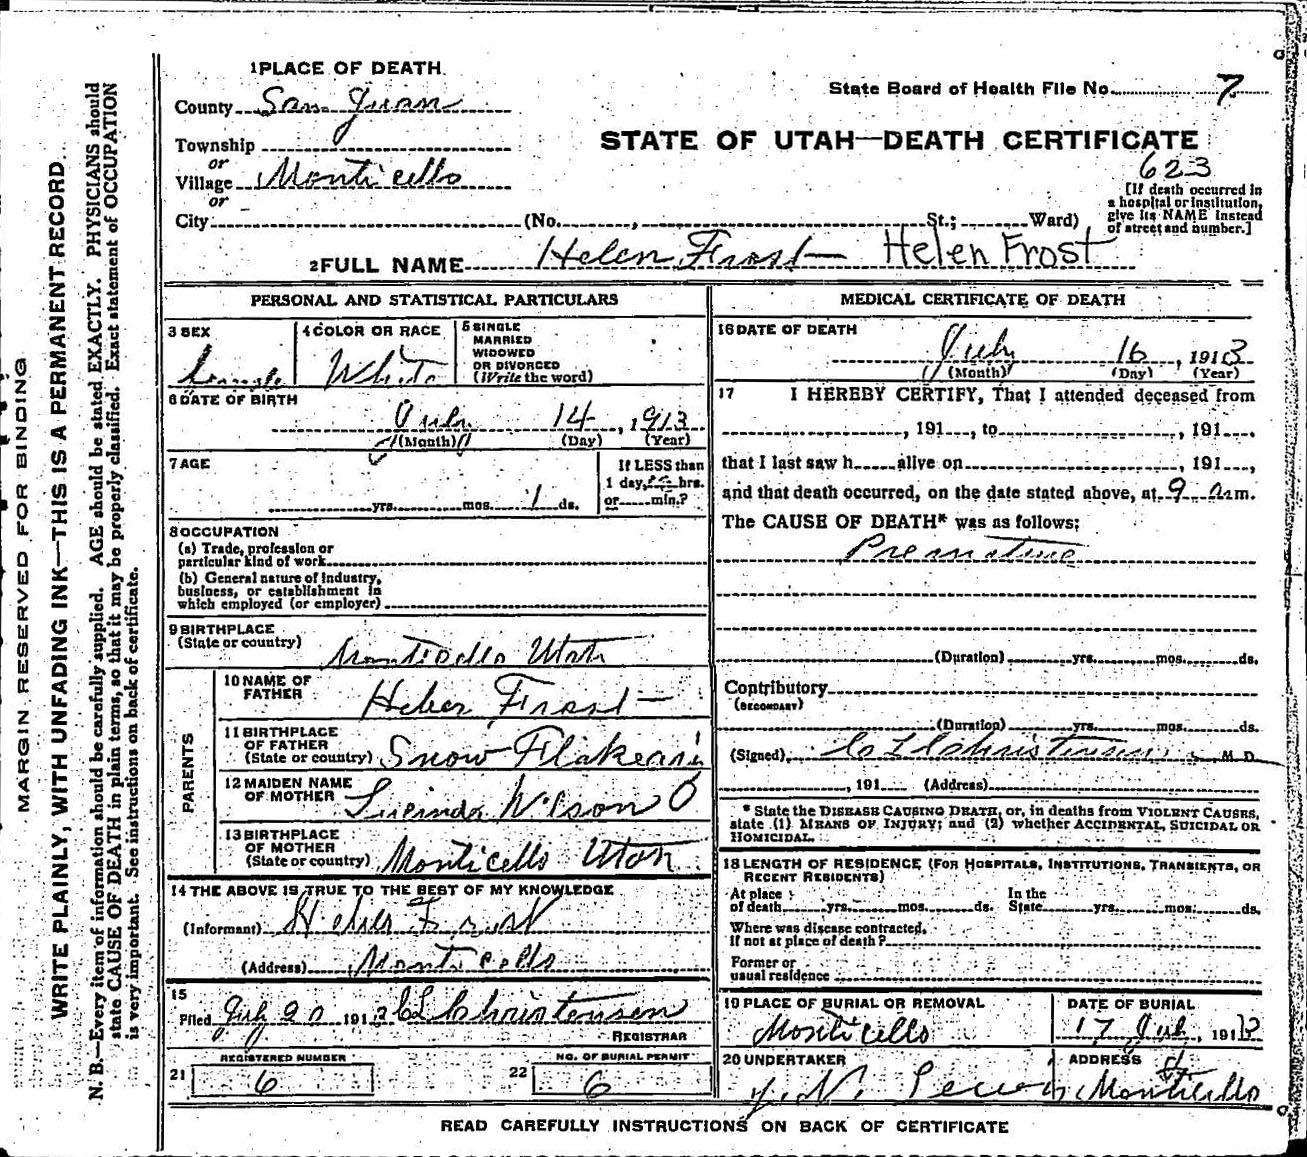 MARGIN RESERVED FOR BINDING
WRITE PLAINLY, WITH UNFADING INK—THIS IS A PERMANENT RECORD
N. B.—Every item of information should be carefully supplied. AGE should be stated EXACTLY. PHYSICIANS should
state CAUSE OF DEATH in plain terms, so that it may be properly classified. Exact statement of OCCUPATION
is very important. See instructions on back of certificate.
1 PLACE OF DEATH
County San Juan
State Board of Health File No. 7
STATE OF UTAH—DEATH CERTIFICATE
623
Township
or
Village Monticello
or
City (No. , St.; Ward)
[If death occurred in
a hospital or institution,
give its NAME instead
of street and number.]
2 FULL NAME Helen Frost Helen Frost
PERSONAL AND STATISTICAL PARTICULARS
3 SEX
Female
4 COLOR OR RACE
White
5 SINGLE
MARRIED
WIDOWED
OR DIVORCED
(Write the word)
6 DATE OF BIRTH
July 14, 1913
(Month) (Day) (Year)
7 AGE
yrs. mos. 1 ds.
If LESS than
1 day, hrs.
or min.?
8 OCCUPATION
(a) Trade, profession or
particular kind of work
(b) General nature of industry,
business, or establishment in
which employed (or employer)
9 BIRTHPLACE
(State or country)
Monticello Utah
PARENTS
10 NAME OF
FATHER
Heber Frost
11 BIRTHPLACE
OF FATHER
(State or country)
Snow Flake
12 MAIDEN NAME
OF MOTHER
Lucinda Wilson
13 BIRTHPLACE
OF MOTHER
(State or country)
Monticello Utah
14 THE ABOVE IS TRUE TO THE BEST OF MY KNOWLEDGE
(Informant) Heber Frost
(Address) Monticello
15
Filed July 20 1913 CL Christensen
REGISTRAR
REGISTERED NUMBER
21 6
NO. OF BURIAL PERMIT
22 6
MEDICAL CERTIFICATE OF DEATH
16 DATE OF DEATH
July 16, 1913
(Month) (Day) (Year)
17 I HEREBY CERTIFY, That I attended deceased from
, 191 , to , 191 .
that I last saw h alive on , 191 ,
and that death occurred, on the date stated above, at 9 a.m.
The CAUSE OF DEATH* was as follows:
Premature
(Duration) yrs. mos. ds.
Contributory
(SECONDARY)
(Duration) yrs. mos. ds.
(Signed) C L Christensen M. D.
, 191 (Address)
* State the DISEASE CAUSING DEATH, or, in deaths from VIOLENT CAUSES,
state (1) MEANS OF INJURY; and (2) whether ACCIDENTAL, SUICIDAL OR
HOMICIDAL.
18 LENGTH OF RESIDENCE (FOR HOSPITALS, INSTITUTIONS, TRANSIENTS, OR
RECENT RESIDENTS)
At place
of death yrs. mos. ds.
In the
State yrs. mos. ds.
Where was disease contracted,
If not at place of death?
Former or
usual residence
19 PLACE OF BURIAL OR REMOVAL
Monticello
DATE OF BURIAL
17 July, 1913
20 UNDERTAKER
ADDRESS
Monticello
READ CAREFULLY INSTRUCTIONS ON BACK OF CERTIFICATE